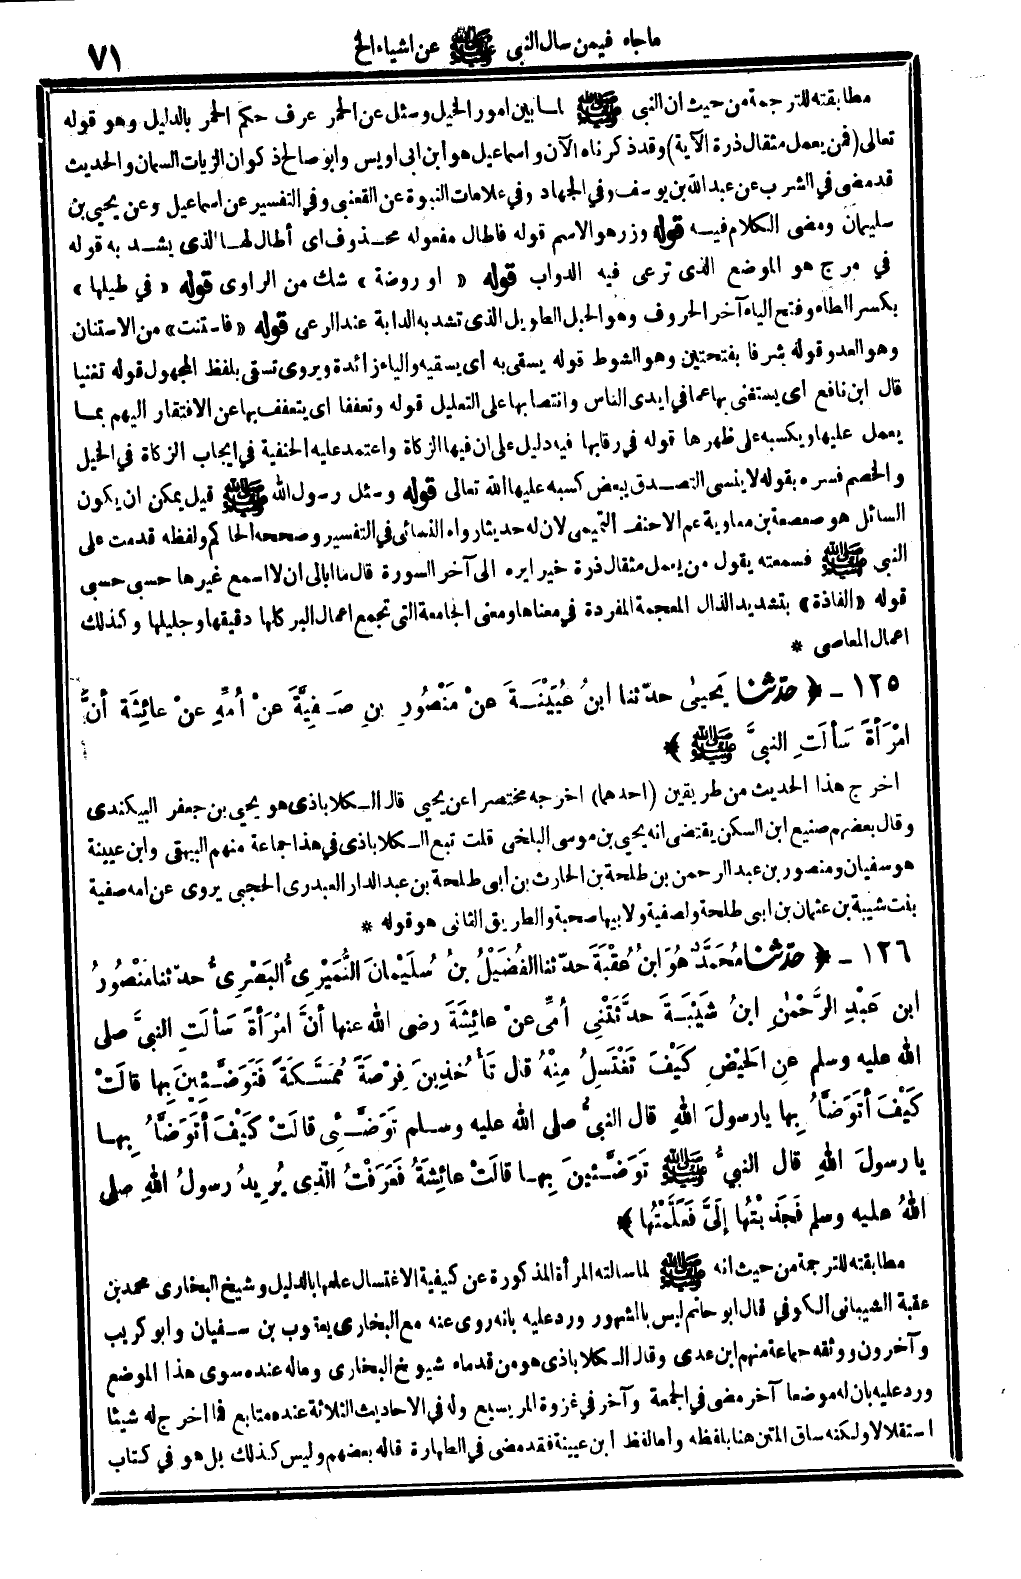 ماجاء فيمن سال النبى ﷺ عن اشياء الخ
٧١
مطابقته للترجمة من حيث ان النبى ﷺ لما بين امور الخيل وسئل عن الحمر عرف حكم الحمر بالدليل وهو قوله
تعالى (فمن يعمل مثقال ذرة الآية) وقد ذكرناه الآن واسماعيل هو ابن ابى اويس وابو صالح ذكوان الزيات السمان والحديث
قد مضى في الشرب عن عبد الله بن يوسف وفي الجهاد وفي علامات النبوة عن القعنبى وفي التفسير عن اسماعيل وعن يحيى بن
سليمان ومضى الكلام فيه قوله وزر هو الاسم قوله فاطال مفعوله محذوف اى أطال لها الذى يشد به قوله
في مرج هو الموضع الذى ترعى فيه الدواب قوله « او روضة » شك من الراوى قوله « في طيلها »
بكسر الطاء وفتح الياء آخر الحروف وهو الحبل الطويل الذى تشد به الدابة عند الرعى قوله « فاستنت » من الاستنان
وهو العدو قوله شرفا بفتحتين وهو الشوط قوله يسقى به اى يسقيه والياء زائدة ويروى تسقى بلفظ المجهول قوله تغنيا
قال ابن نافع اى يستغنى بها عما في ايدى الناس وانتصابها على التعليل قوله وتعففا اى يتعفف بها عن الافتقار اليهم بما
يعمل عليها ويكسبه على ظهرها قوله في رقابها فيه دليل على ان فيها الزكاة واعتمد عليه الحنفية في ايجاب الزكاة في الخيل
والخصم فسره بقوله لا ينسى التصدق ببعض كسبه عليها الله تعالى قوله وسئل رسول الله ﷺ قيل يمكن ان يكون
السائل هو صعصعة بن معاوية عم الاحنف التميمى لان له حديثا رواه النسائى في التفسير وصححه الحاكم ولفظه قدمت على
النبى ﷺ فسمعته يقول من يعمل مثقال ذرة خيرا يره الى آخر السورة قال ما ابالى ان لا اسمع غيرها حسبى حسبى
قوله « الفاذة » بتشديد الذال المعجمة المفردة في معناها ومعنى الجامعة التى تجمع اعمال البر كلها دقيقها وجليلها وكذلك
اعمال المعاصى *
١٢٥ - ﴿ حدّثنا يَحيىٰ حدّثنا ابنُ عُيَيْنَةَ عنْ مَنْصُورِ بنِ صَفِيَّةَ عنْ أُمِّهِ عنْ عائِشَةَ أنَّ
امْرَأةً سَألَتِ النبيَّ ﷺ ﴾
اخرج هذا الحديث من طريقين (احدهما) اخرجه مختصرا عن يحيى قال الكلاباذى هو يحيى بن جعفر البيكندى
وقال بعضهم صنيع ابن السكن يقتضى انه يحيى بن موسى البلخى قلت تبع الكلاباذى في هذا جماعة منهم البيهقى وابن عيينة
هو سفيان ومنصور بن عبد الرحمن بن طلحة بن الحارث بن ابى طلحة بن عبد الدار العبدرى الحجبى يروى عن امه صفية
بنت شيبة بن عثمان بن ابى طلحة ولصفية ولابيها صحبة والطريق الثانى هو قوله *
١٢٦ - ﴿ حدّثنا مُحَمَّدٌ هُوَ ابنُ عُقْبَةَ حدّثنا الفُضَيْلُ بنُ سُلَيْمَانَ النُّمَيْرِىُّ البَصْرِىُّ حدّثنا مَنْصُورُ
ابن عَبْدِ الرَّحْمٰنِ ابنُ شَيْبَةَ حدَّثَتْنِى أُمِّى عنْ عائِشَةَ رضى الله عنها أنَّ امْرَأةً سَألَتِ النبيَّ صلى
الله عليه وسلم عنِ الحَيْضِ كَيْفَ تَغْتَسِلُ مِنْهُ قال تَأْخُذِينَ فِرْصَةً مُمَسَّكَةً فَتَوَضَّئِينَ بِها قالَتْ
كَيْفَ أتَوَضَّأُ بِها يارسولَ اللهِ قال النبيُّ صلى الله عليه وسلم تَوَضَّئِى قالَتْ كَيْفَ أتَوَضَّأُ بِها
يا رسولَ اللهِ قال النبيُّ ﷺ تَوَضَّئِينَ بِها قالَتْ عائِشَةُ فَعَرَفْتُ الّذِى يُرِيدُ رسولُ اللهِ صلى
اللهُ عليه وسلم فَجَذَبْتُها إلَيَّ فَعَلَّمْتُها ﴾
مطابقته للترجمة من حيث انه ﷺ لما سالته المرأة المذكورة عن كيفية الاغتسال علمها بالدليل وشيخ البخارى محمد بن
عقبة الشيبانى الكوفي قال ابو حاتم ليس بالشهور ورد عليه بانه روى عنه مع البخارى يعقوب بن سفيان وابو كريب
وآخرون ووثقه جماعة منهم ابن عدى وقال الكلاباذى هو من قدماء شيوخ البخارى وماله عنده سوى هذا الموضع
ورد عليه بان له موضعا آخر مضى في الجمعة وآخر في غزوة المريسيع وله في الاحاديث الثلاثة عنده متابع فما اخرج له شيئا
استقلالا ولكنه ساق المتن هنا بلفظه وأما لفظ ابن عيينة فقد مضى في الطهارة قاله بعضهم وليس كذلك بل هو في كتاب